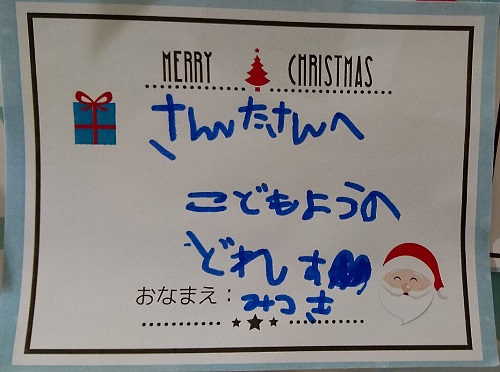 MERRY CHRISTMAS
さんたさんへ
こどもようの
どれす
おなまえ：みつき